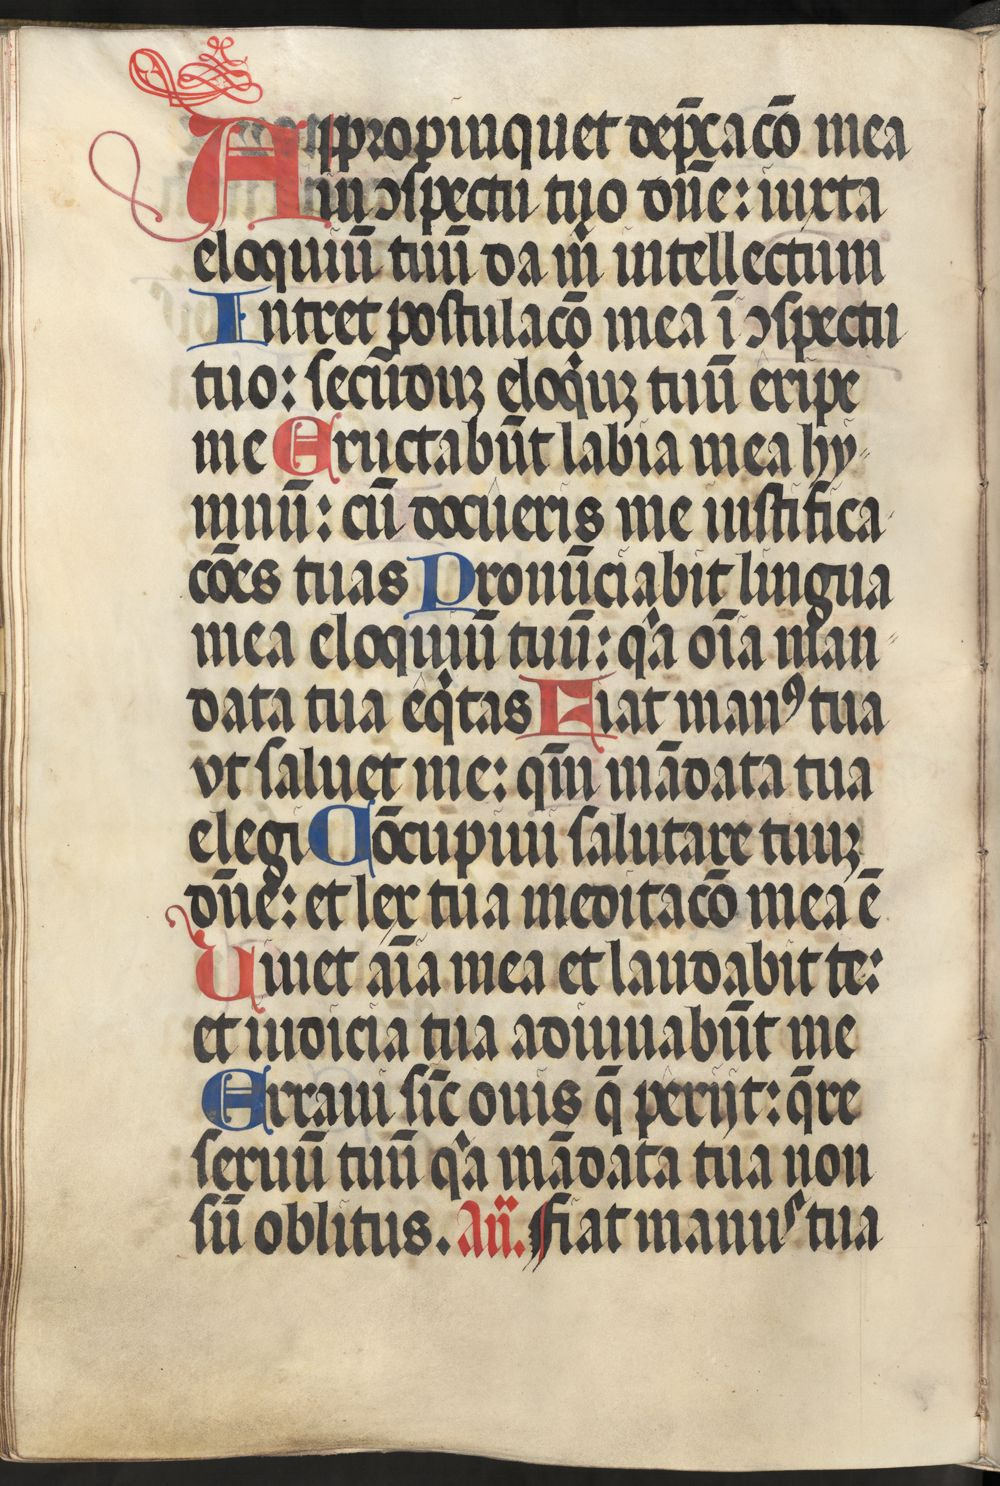 Appropinquet dep̄cacō mea
in ↄspectu tuo dn̄e: iuxta
eloquiū tuū da m̄ intellectum
Intret postulacō mea ī ↄspectu
tuo: secūduꝫ eloq'uꝫ tuū eripe
me Eructabūt labia mea hy-
mnū: cū docueris me iustifica
cōes tuas Pronūciabit lingua
mea eloquiū tuū: q'a oīa man-
data tua eq'tas Fiat man⁹ tua
vt saluet me: qm̄ mādata tua
elegi Cōcupiui salutare tuuꝫ
dn̄e: et lex tua meditacō mea ē
Uiuet aīa mea et laudabit te:
et iudicia tua adiuuabūt me
Erraui sic̄ ouis q̄ perijt: q̄re
seruū tuū q'a mādata tua non
sū oblitus. An̄. Fiat manus tua